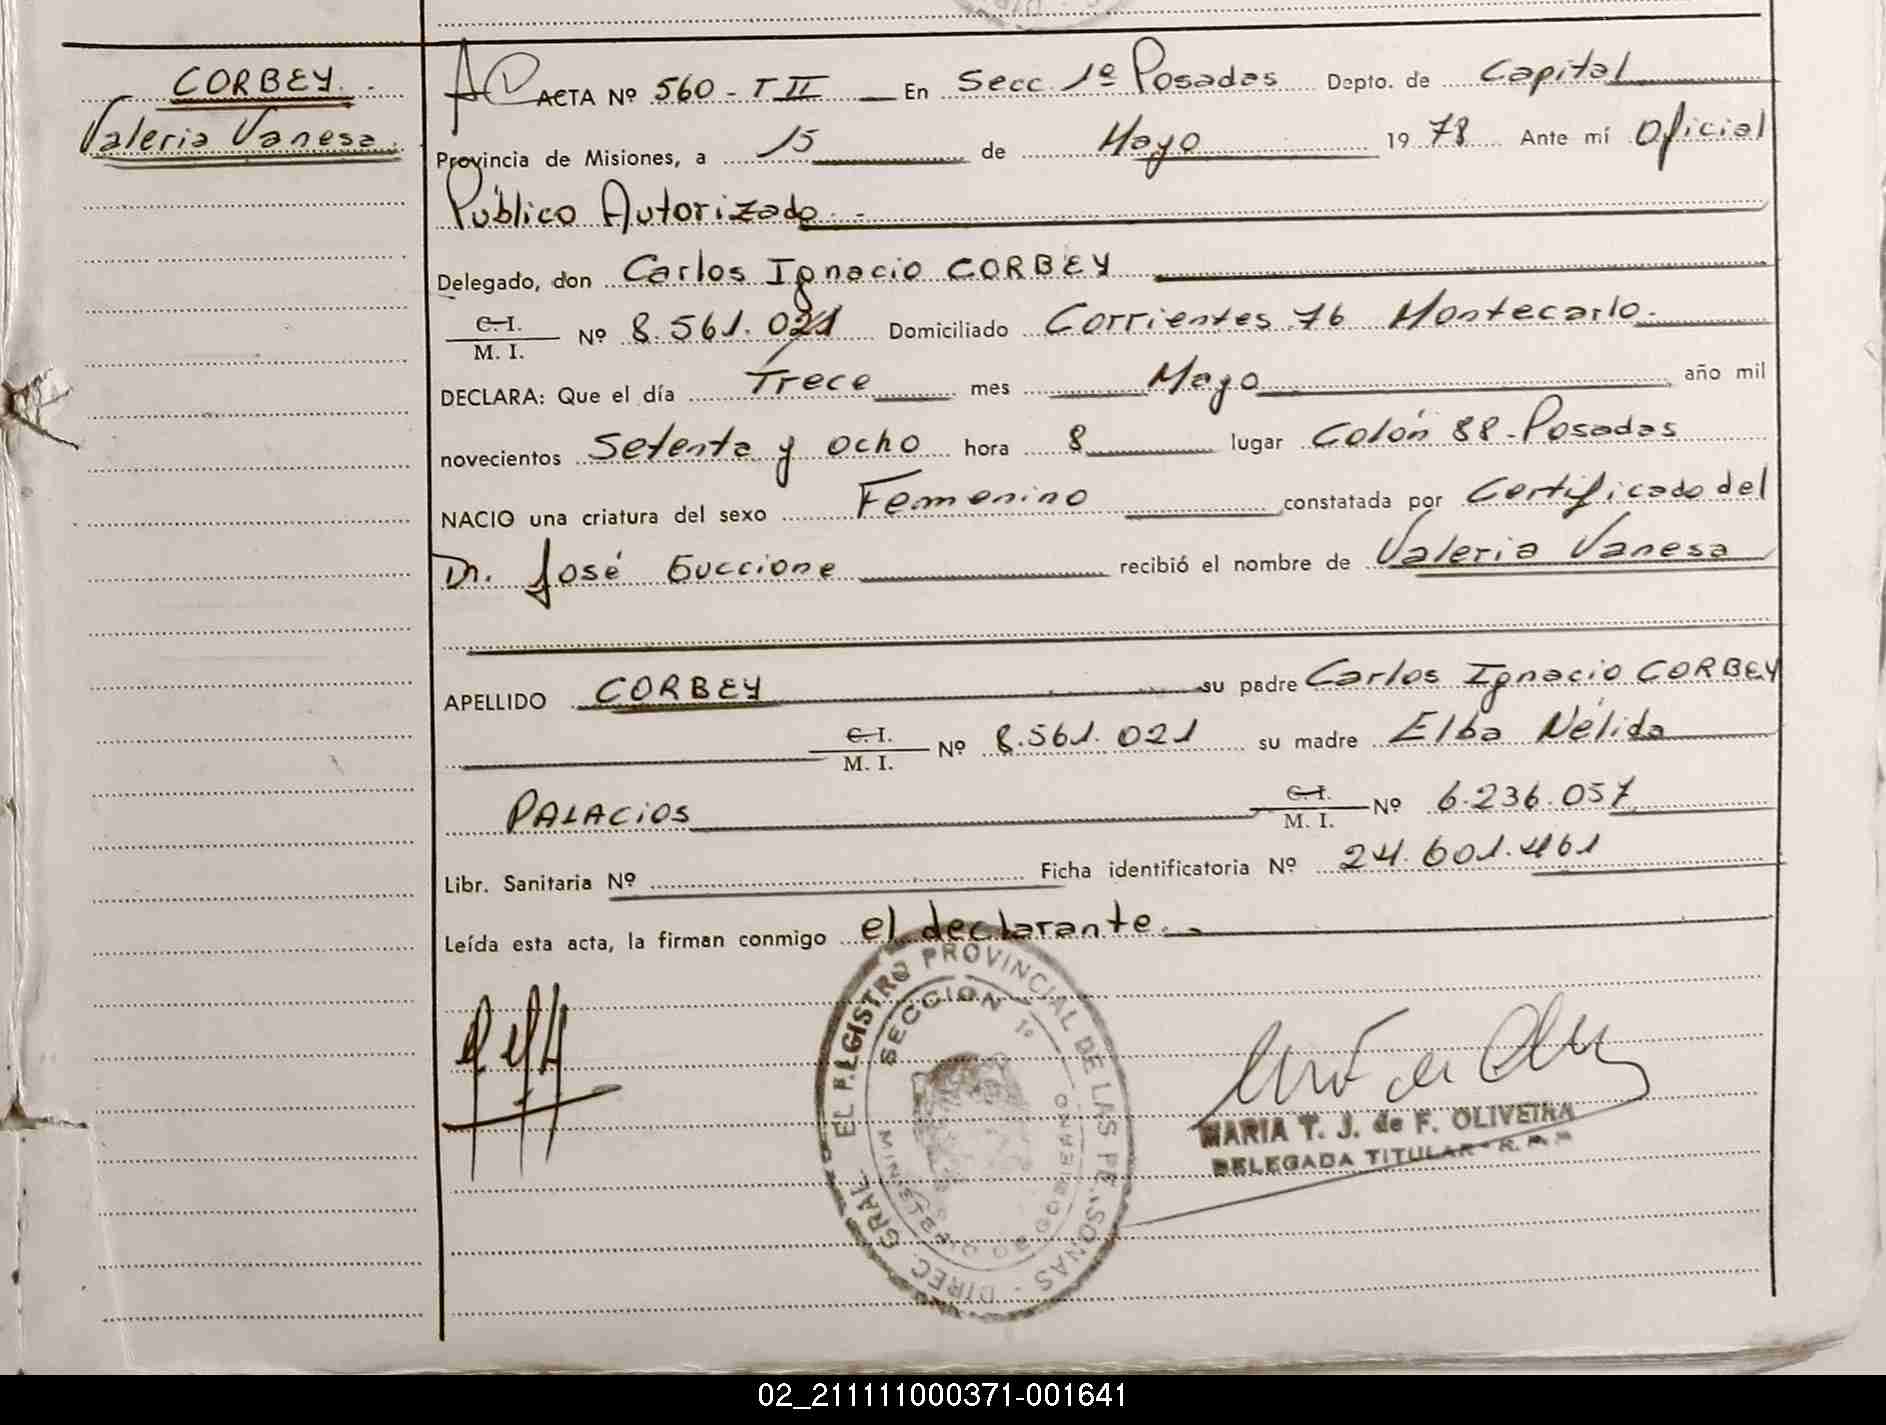 CORBEY.-
Valeria Vanesa.
ACTA Nº 560 - T II En Secc. 1º Posadas Depto. de Capital
Provincia de Misiones, a 15 de Mayo 1978 Ante mí Oficial
Público Autorizado.-
Delegado, don Carlos Ignacio CORBEY
C. I.
M. I. Nº 8.561.021 Domiciliado Corrientes 76 Montecarlo.
DECLARA: Que el día Trece mes Mayo año mil
novecientos Setenta y ocho hora 8 lugar Colón 88-Posadas
NACIO una criatura del sexo Femenino constatada por Certificado del
Dr. José Guccione recibió el nombre de Valeria Vanesa
APELLIDO CORBEY su padre Carlos Ignacio CORBEY
C. I.
M. I. Nº 8.561.021 su madre Elba Nélida
PALACIOS C. I.
M. I. Nº 6.236.057
Libr. Sanitaria Nº Ficha identificatoria Nº 24.601.461
Leída esta acta, la firman conmigo el declarante.-
DIREC. GRAL. EL REGISTRO PROVINCIAL DE LAS PERSONAS
SECCION 1º
MINISTERIO DE GOBIERNO
MARIA T. J. de F. OLIVEIRA
DELEGADA TITULAR - R. P. P.
02_211111000371-001641